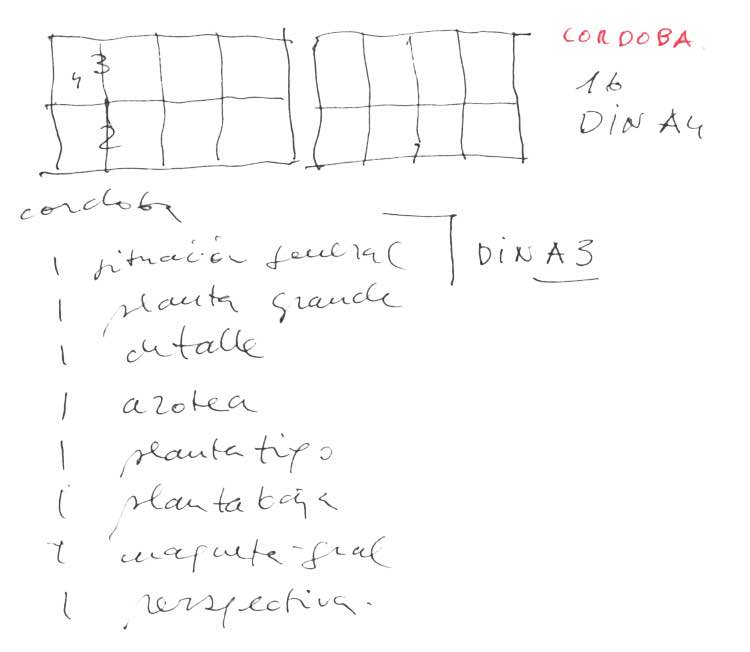 CORDOBA
16
DIN A4
4 3
2
1
cordoba
1 situación general
DIN A3
1 planta grande
1 detalle
1 azotea
1 planta tipo
1 planta baja
1 maqueta-gral
1 perspectiva.